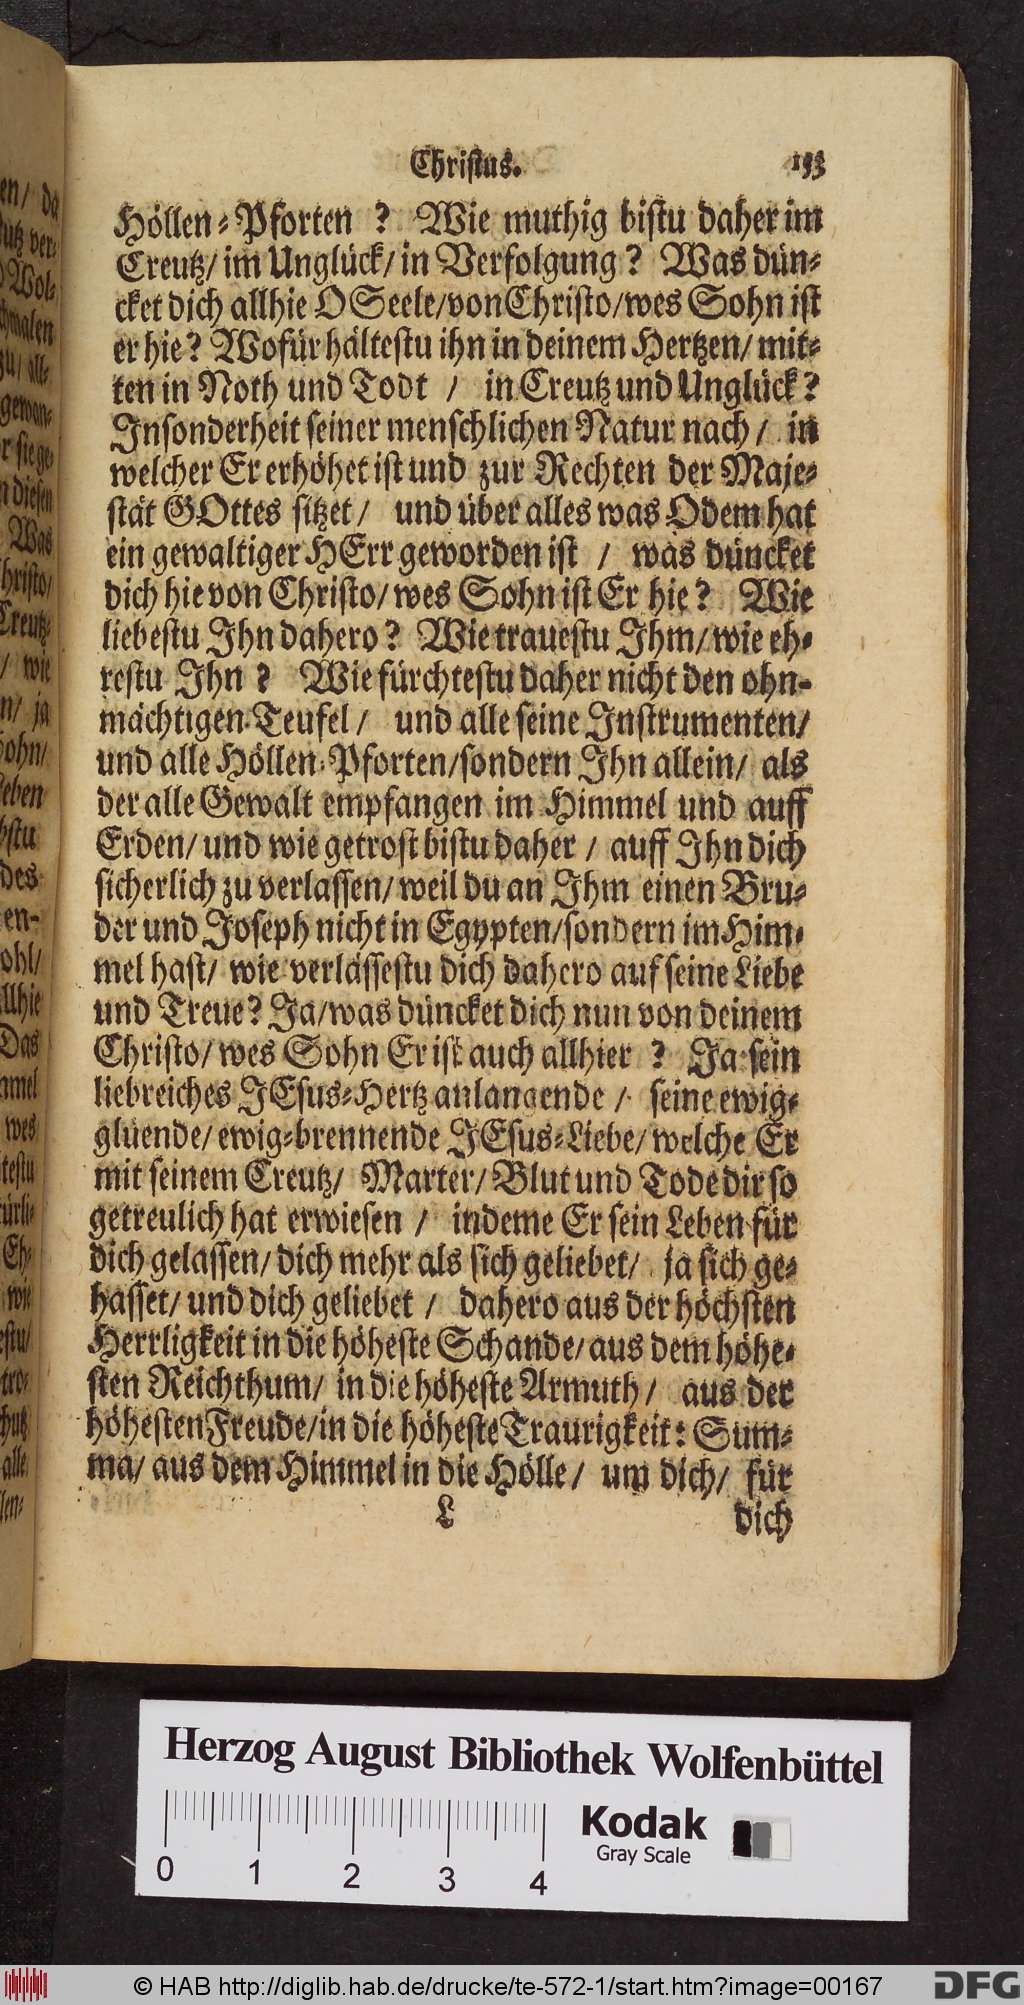 Christus. 153
Höllen-Pforten ? Wie muthig bistu daher im
Creutz/ im Unglück/ in Verfolgung? Was dün-
cket dich allhie O Seele/ von Christo/ wes Sohn ist
er hie? Wofür hältestu ihn in deinem Hertzen/ mit-
ten in Noth und Todt / in Creutz und Unglück?
Insonderheit seiner menschlichen Natur nach/ in
welcher Er erhöhet ist und zur Rechten der Maje-
stät GOttes sitzet/ und über alles was Odem hat
ein gewaltiger HErr geworden ist / was düncket
dich hie von Christo/ wes Sohn ist Er hie? Wie
liebestu Ihn dahero? Wie trauestu Ihm/ wie eh-
restu Ihn? Wie fürchtestu daher nicht den ohn-
mächtigen Teufel/ und alle seine Instrumenten/
und alle Höllen-Pforten/ sondern Ihn allein/ als
der alle Gewalt empfangen im Himmel und auff
Erden/ und wie getrost bistu daher / auff Ihn dich
sicherlich zu verlassen/ weil du an Ihm einen Bru-
der und Joseph nicht in Egypten/ sondern im Him-
mel hast/ wie verlässestu dich dahero auf seine Liebe
und Treue? Ja/ was düncket dich nun von deinem
Christo/ wes Sohn Er ist auch allhier ? Ja sein
liebreiches JEsus-Hertz anlangende / seine ewig-
glüende/ ewig-brennende JEsus-Liebe/ welche Er
mit seinem Creutz/ Marter/ Blut und Tode dir so
getreulich hat erwiesen / indeme Er sein Leben für
dich gelassen/ dich mehr als sich geliebet/ ja sich ge-
hasset/ und dich geliebet / dahero aus der höchsten
Herrligkeit in die höheste Schande/ aus dem höhe-
sten Reichthum/ in die höheste Armuth/ aus der
höhesten Freude/ in die höheste Traurigkeit: Sum-
ma/ aus dem Himmel in die Hölle/ um dich/ für
L dich
Herzog August Bibliothek Wolfenbüttel
0 1 2 3 4
Kodak
Gray Scale
© HAB http://diglib.hab.de/drucke/te-572-1/start.htm?image=00167
DFG